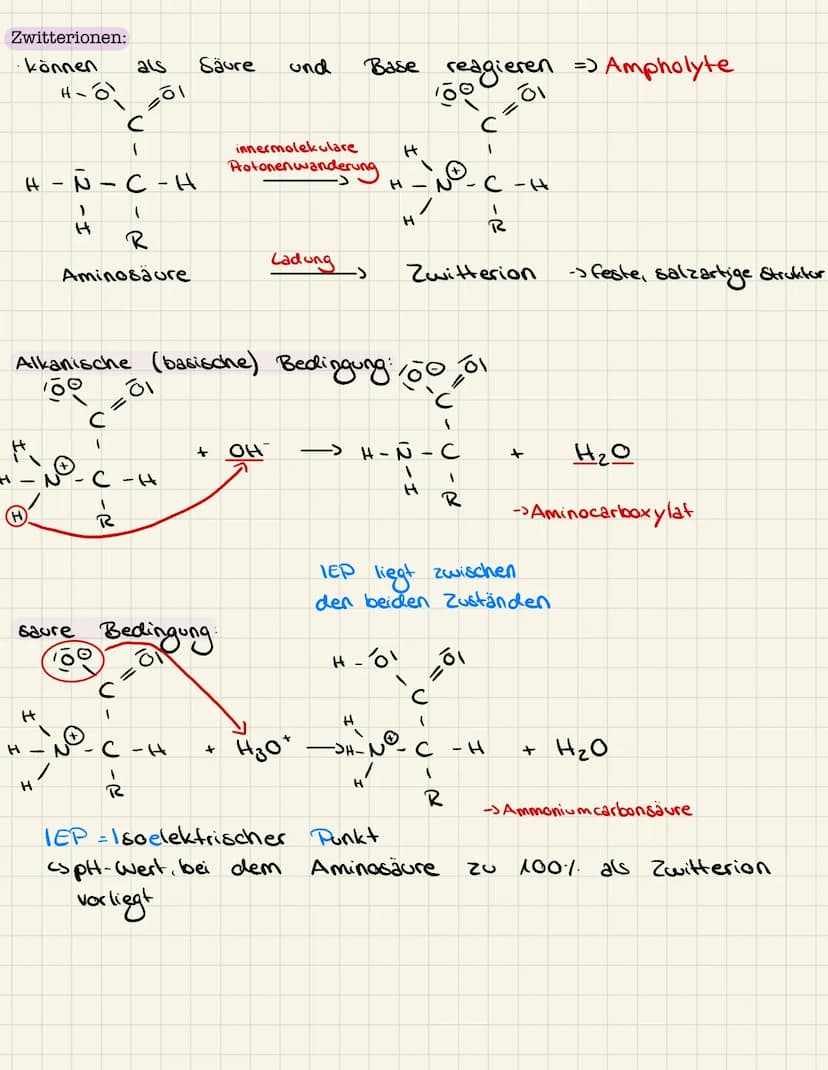 Zwitterionen:
· können als Säure und Base reagieren => Ampholyte
H - Ō| Ō| |Ō ⊖ Ō|
C C
innermolekulare H
Protonenwanderung
H - N̄ - C - H → H - N⊕ - C - H
H R H R
Aminosäure Ladung → Zwitterion -> feste, salzartige Struktur
Alkanische (basische) Bedingung:
|Ō ⊖ Ō| |Ō ⊖ Ō|
C C
H
H - N⊕ - C - H + OH⁻ → H - N̄ - C + H₂O
H R H R
-> Aminocarboxylat
IEP liegt zwischen
den beiden Zuständen
saure Bedingung:
|Ō ⊖ Ō| H - Ō| Ō|
C C
H H
H - N⊕ - C - H + H₃O⁺ → H - N⊕ - C - H + H₂O
H R H R
-> Ammoniumcarbonsäure
IEP = Isoelektrischer Punkt
↳ pH-Wert, bei dem Aminosäure zu 100% als Zwitterion
vorliegt